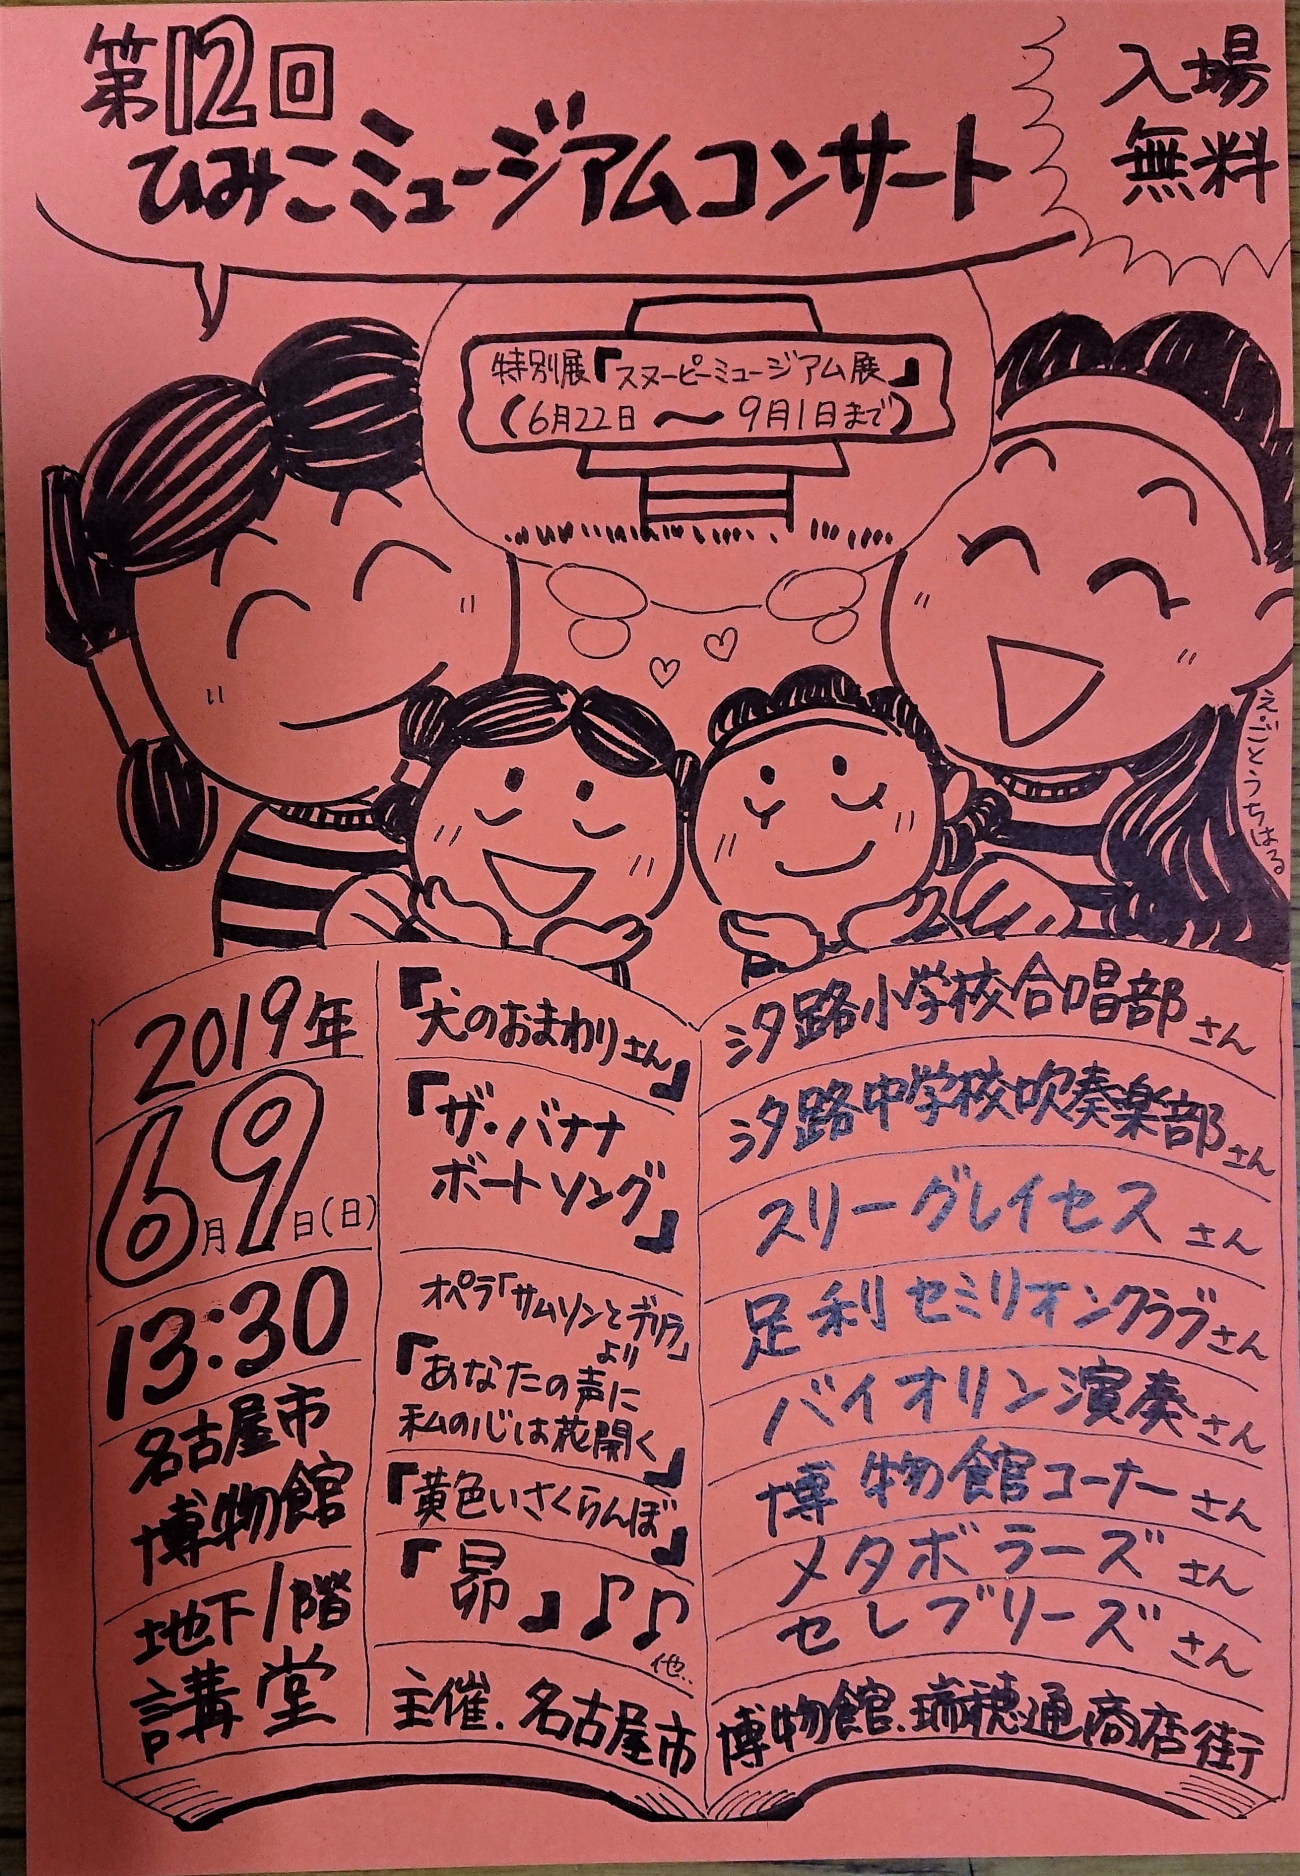 第12回
ひみこミュージアムコンサート
入場
無料
特別展『スヌーピーミュージアム展』
(6月22日〜9月1日まで)
え・ごとうちはる
2019年
6月9日(日)
13:30
名古屋市
博物館
地下1階
講堂
『犬のおまわりさん』
『ザ・バナナ
ボートソング』
オペラ「サムソンとデリラ」
より
『あなたの声に
私の心は花開く』
『黄色いさくらんぼ』
『昴』♪♪
他..
汐路小学校合唱部さん
汐路中学校吹奏楽部さん
スリーグレイセスさん
足利セミリオンクラブさん
バイオリン演奏さん
博物館コーナーさん
メタボラーズさん
セレブリーズさん
主催.名古屋市博物館.瑞穂通商店街